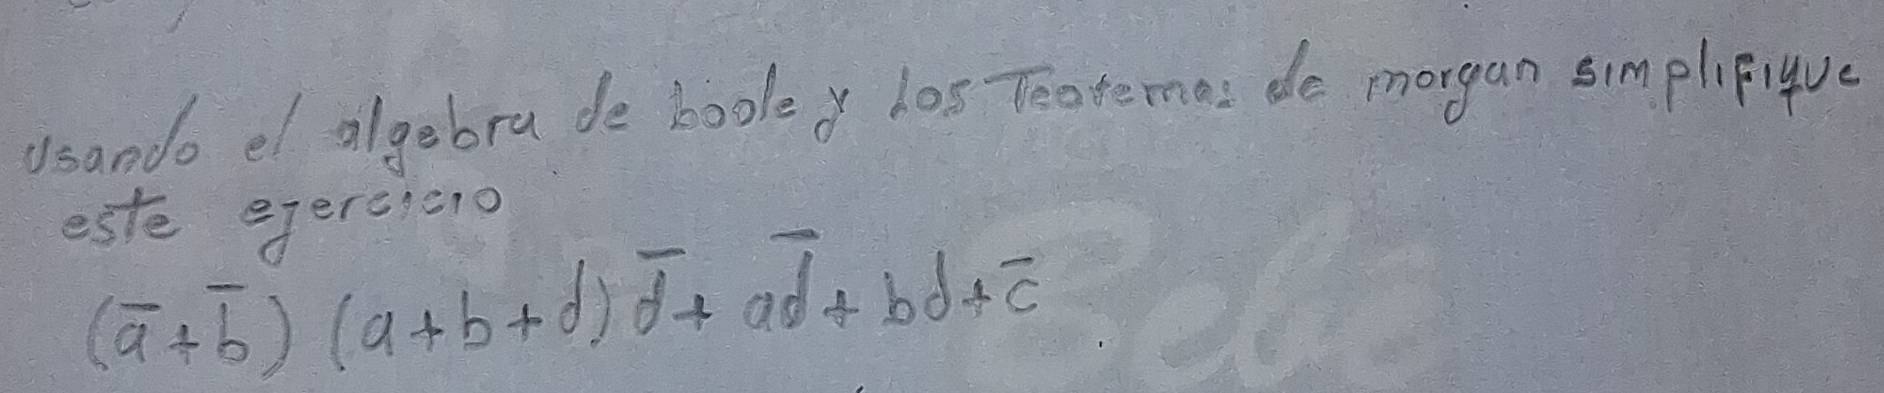 Usando el álgebra de boole y Los Teoremas de morgan simplifique
este ejercicio
(a̅ + b̅) (a + b + d) d̅ + ad̅ + bd + c̅